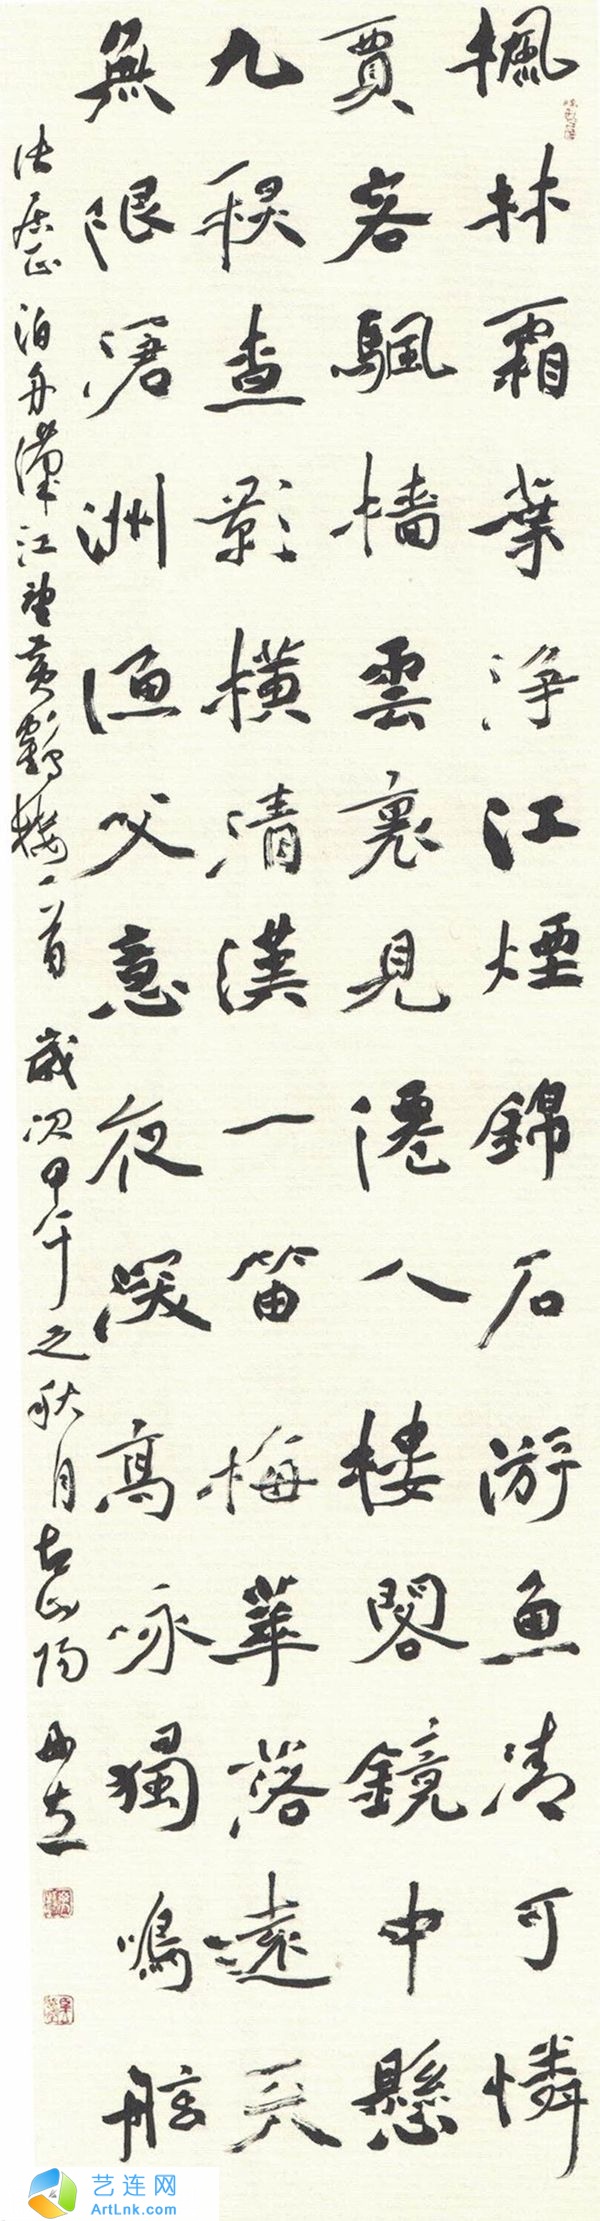 楓林霜葉淨江煙錦石游魚清可憐
賈客颿檣雲裏見僊人樓閣鏡中懸
九秋查影橫清漢一笛梅華落遠天
無限滄洲漁父意夜深高咏獨鳴舷
張居正泊舟漢江望黃鶴樓一首 歲次甲午之秋月古山陽
艺连网
ArtLnk.com